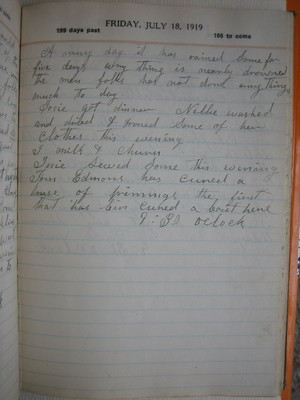 FRIDAY, JULY 18, 1919
199 days past
166 to come
A rainy day it has rained some for
five days every thing is nearly drowned
the men folks has not done any thing
much to day
Josie got dinner Nillie washed
and dried & Ironed Some of her
Clothes this evening
I milk & Churn
Josie Sewed Some this evening
Tom Edmons has Cured a
house of primings the first
that has ben Cured a bout here
O clock